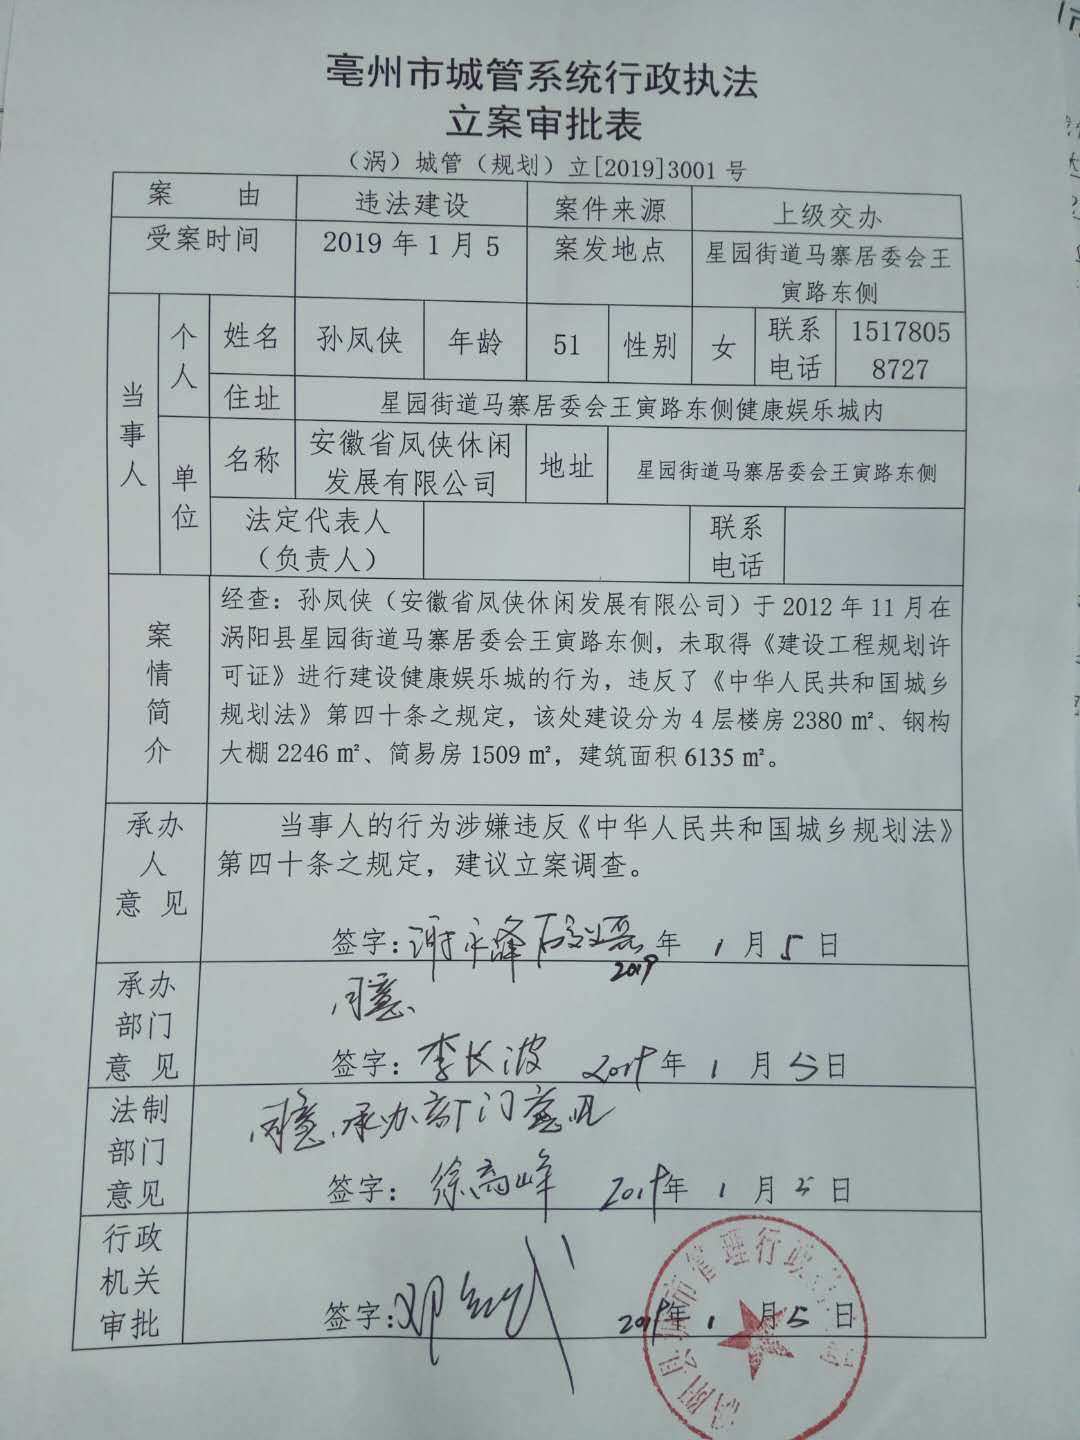 亳州市城管系统行政执法
立案审批表
（涡）城管（规划）立[2019]3001 号
案 由 违法建设 案件来源 上级交办
受案时间 2019 年 1 月 5 案发地点 星园街道马寨居委会王
寅路东侧
当事人 个人 姓名 孙凤侠 年龄 51 性别 女 联系电话 1517805
8727
住址 星园街道马寨居委会王寅路东侧健康娱乐城内
单位 名称 安徽省凤侠休闲
发展有限公司 地址 星园街道马寨居委会王寅路东侧
法定代表人
（负责人） 联系
电话
案情简介
经查：孙凤侠（安徽省凤侠休闲发展有限公司）于 2012 年 11 月在
涡阳县星园街道马寨居委会王寅路东侧，未取得《建设工程规划许
可证》进行建设健康娱乐城的行为，违反了《中华人民共和国城乡
规划法》第四十条之规定，该处建设分为 4 层楼房 2380 ㎡、钢构
大棚 2246 ㎡、简易房 1509 ㎡，建筑面积 6135 ㎡。
承办
人
意 见
当事人的行为涉嫌违反《中华人民共和国城乡规划法》
第四十条之规定，建议立案调查。
签字：谢永峰 年 1 月 5 日
2019
承办
部门
意 见
同意
签字：李长波 2019年 1 月 5 日
法制
部门
意见
同意承办部门意见
签字：徐高峰 2019年 1 月 5 日
行政
机关
审批
签字：邓 2019年 1 月 5 日
涡阳县城市管理行政执法局